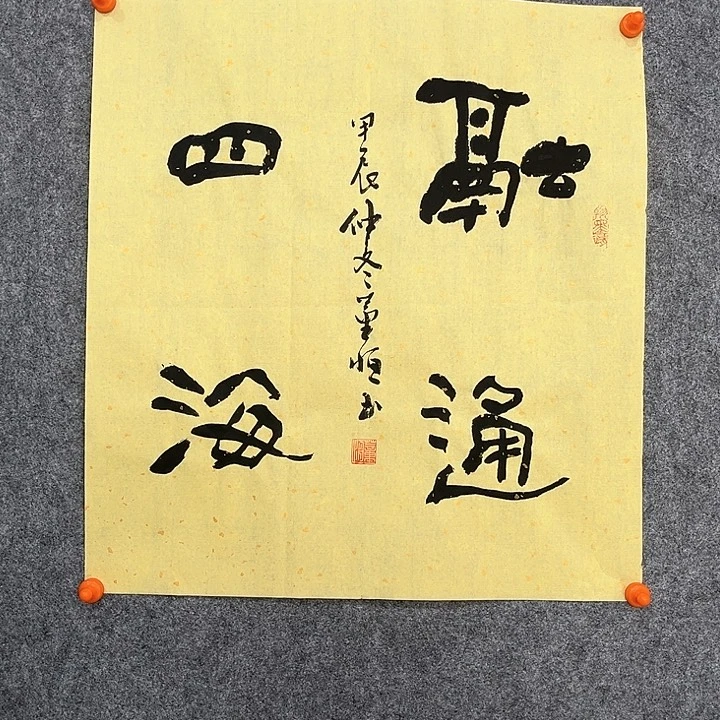 融通
四海
甲辰仲冬董恒书